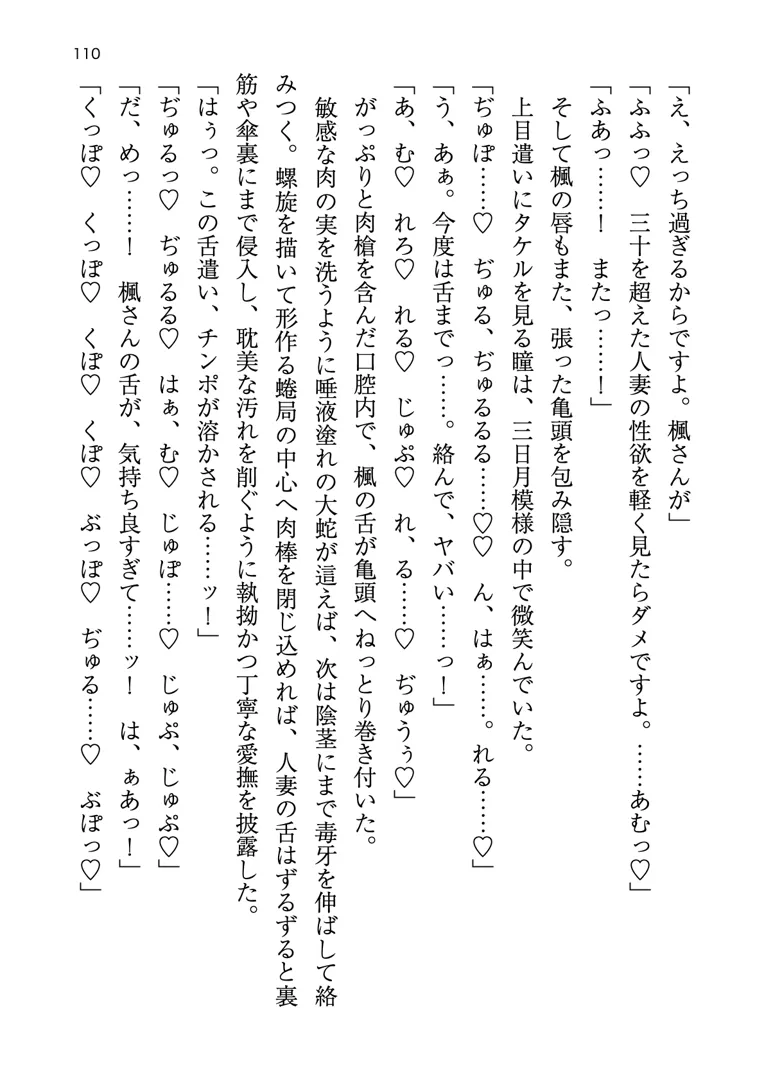 110
「え、えっち過ぎるからですよ。楓さんが」
「ふふっ♡　三十を超えた人妻の性欲を軽く見たらダメですよ。……あむっ♡」
「ふあっ……！　またっ……！」
　そして楓の唇もまた、張った亀頭を包み隠す。
　上目遣いにタケルを見る瞳は、三日月模様の中で微笑んでいた。
「ぢゅぽ……♡　ぢゅる、ぢゅるるる……♡♡　ん、はぁ……。れる……♡」
「う、あぁ。今度は舌までっ……。絡んで、ヤバい……っ！」
「あ、む♡　れろ♡　れる♡　じゅぷ♡　れ、る……♡　ぢゅうぅ♡」
　がっぷりと肉槍を含んだ口腔内で、楓の舌が亀頭へねっとり巻き付いた。
　敏感な肉の実を洗うように唾液塗れの大蛇が這えば、次は陰茎にまで毒牙を伸ばして絡
みつく。螺旋を描いて形作る蜷局の中心へ肉棒を閉じ込めれば、人妻の舌はずるずると裏
筋や傘裏にまで侵入し、耽美な汚れを削ぐように執拗かつ丁寧な愛撫を披露した。
「はぅっ。この舌遣い、チンポが溶かされる……ッ！」
「ぢゅるっ♡　ぢゅるる♡　はぁ、む♡　じゅぽ……♡　じゅぷ、じゅぷ♡」
「だ、めっ……！　楓さんの舌が、気持ち良すぎて……ッ！　は、ぁあっ！」
「くっぽ♡　くっぽ♡　くぽ♡　くぽ♡　ぶっぽ♡　ぢゅる……♡　ぶぽっ♡」